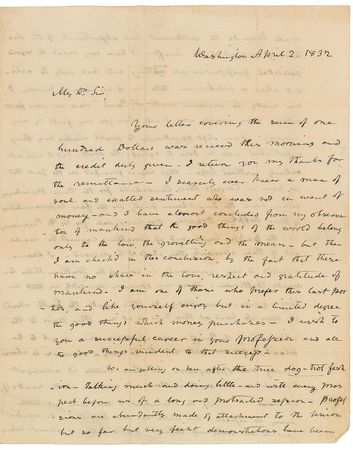 Washington April 2. 1832
My Dr Sir,
Your letter covering the sum of one
hundred Dollars was recieved this morning and
the credit duly given - I return you my thanks for
the remittance - I scarcely ever knew a man of
soul and exalted sentiment who was not in want of
money - and I have almost concluded from my observa
tion of mankind that the good things of the world belong
only to the low, the grovelling, and the mean - but then
I am check'd in this conclusion by the fact that these
have no share in the love, respect and gratitude of
mankind - I am one of those who prefer this last por
tion, and like yourself enjoy but in a limited degree
the good things which money purchases - I wish to
you a successful career in your profession and all
the good things incident to that success -
We are getting on here after the true dog-trot fash
ion - talking much and doing little - and with every pros
pect before us of a long and protracted session - profes
sions are abundantly made of attachment to the Union
but so far but very feeble demonstrations have been